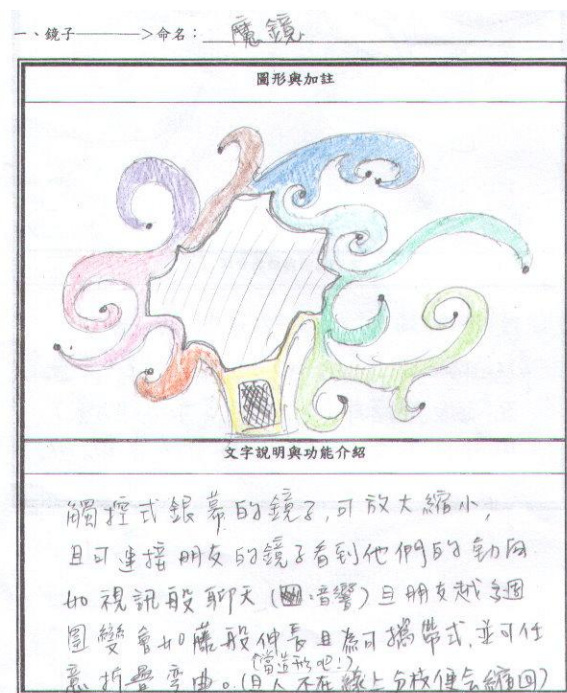 一、鏡子————>命名：魔鏡
圖形與加註
文字說明與功能介紹
觸控式銀幕的鏡子,可放大縮小,
且可連接朋友的鏡子看到他們的動向
如視訊般聊天(:音響)且朋友越多週
圍變會如藤般伸長且為可攜帶式,並可任
(當造形吧!)
意折疊彎曲。(且人不在線上分枝便會縮回)